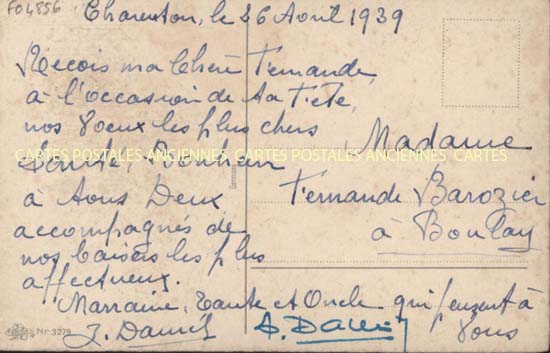 FO4856
Charenton, le 26 Aout 1939
Recois ma Chère Fernande,
à l'occasion de ta Fête,
nos voeux les plus chers
Santé, Bonheur
à Vous Deux
accompagnés de
nos baisers les plus
affectueux.
Marraine, Tante et Oncle qui pensent à
vous
Madame
Fernande Barozier
à Boulay
CARTES POSTALES ANCIENNES CARTES POSTALES ANCIENNES CARTES
Nr. 3279